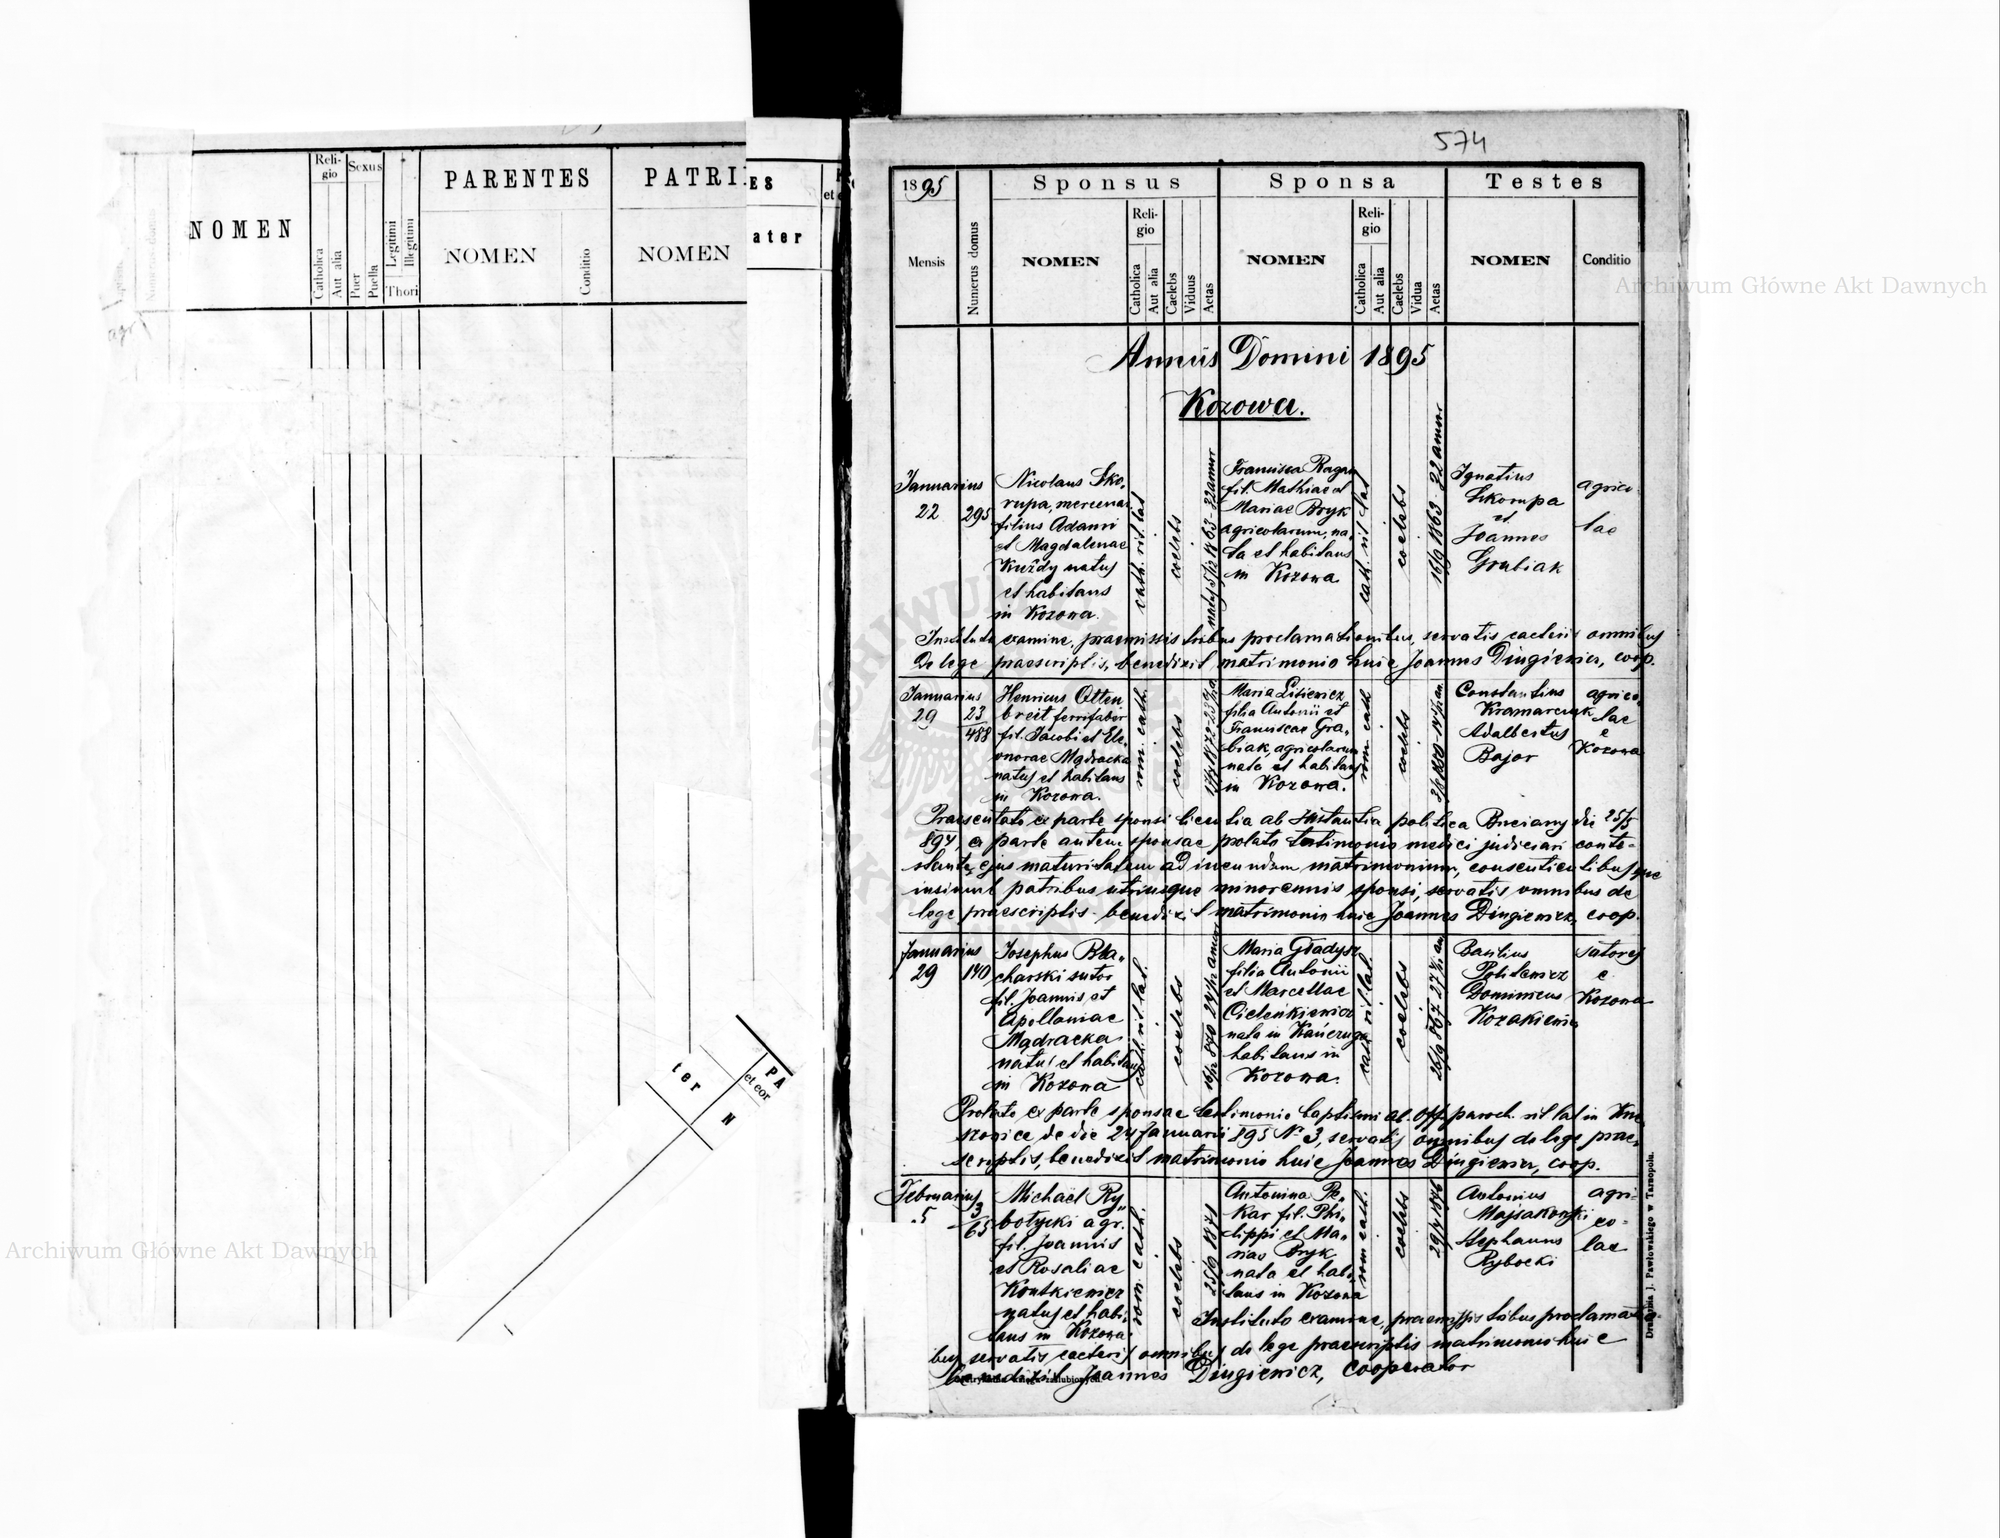 574
NOMEN
Religio
Catholica
Aut alia
Sexus
Puer
Puella
Legitimi
Illegitimi
Thori
PARENTES
NOMEN
Conditio
PATRI
NOMEN
ES
ater
et
ter
PA
et eor
N
1895
Mensis
Numerus domus
Sponsus
NOMEN
Reli-
gio
Catholica
Aut alia
Caelebs
Viduus
Aetas
Sponsa
NOMEN
Reli-
gio
Catholica
Aut alia
Caelebs
Vidua
Aetas
Testes
NOMEN
Conditio
Annus Domini 1895
Kozowa.
Januarius
22
295
Nicolaus Sko-
rupa, mercenar
filius Adami
et Magdalenae
Kużdy natus
et habitans
in Kozowa.
cath. rit. lat
coelebs
natus 5/12 1863 - 32 annor
Francisca Ragan
fil. Mathiae et
Mariae Bryk
agricolarum, na-
ta et habitans
in Kozowa
cath. rit. lat
coelebs
16/9 1863 - 22 annor
Ignatius
Skorupa
et
Joannes
Grabiak
agrico
lae
Instituto examine, praemissis tribus proclamationibus, servatis caeteris omnibus
de lege praescriptis, benedixit matrimonio huic Joannes Dingiewicz, coop.
Januarius
29
23
488
Henricus Otten
breit ferrifaber
fil. Jacobi et Ele-
onorae Mądracka
natus et habitans
in Kozowa.
rom. cath.
coelebs
Maria Lisiewicz
filia Antonii et
Franciscae Gra-
biak, agricolarum
nata et habitans
in Kozowa.
rom. cath
coelebs
Constantius
Kramarczuk
Adalbertus
Bajor
agrico-
lae
e
Kozowa
Praesentata ex parte sponsi licentia ab Instantia politica Brzeciany die 25/5
894, ex parte autem sponsae prolato testimonio medici judiciarii conte-
stante ejus maturitatem ad ineundum matrimonium, consentientibusque
insimul patribus utriusque minorennis sponsi, servatis omnibus de
lege praescriptis benedixit matrimonio huic Joannes Dingiewicz, coop.
Januarius
29
140
Josephus Bła-
charski sutor
fil. Joannis et
Apolloniae
Mądracka
natus et habitans
in Kozowa
cath. rit. lat.
coelebs
Maria Gładysz
filia Antonii
et Marcellae
Cieleńkiewicz
nata in Kańczuga
habitans in
Kozowa.
cath rit. lat.
coelebs
Basilius
Politewicz
Dominicus
Kozakiewicz
sutores
e
Kozowa
Prolato ex parte sponsae testimonio baptismi ab off. paroch. rit lat in
de die 24 Januarii 895 Nr 3, servatis omnibus de lege prae-
scriptis, benedixit matrimonio huic Joannes Dingiewicz, coop.
Februarius
5
3
65
Michaël Ry-
botycki agr.
fil. Joannis
et Rosaliae
Kontkiewicz
natus et habi-
tans in Kozowa
rom. cath.
coelebs
25/9 1871
Antonina Pe-
kar fil. Phi-
lippi et Ma-
riae Bryk
nata et habi-
tans in Kozowa
rom cath.
coelebs
29/4 1876
Antonius
Majsakowski
Stephanus
Rybocki
agri-
co-
lae
Instituto examine, praemissis tribus proclamatio-
bus servatis caeteris omnibus de lege praescriptis matrimonio huic
benedixit Joannes Dingiewicz, cooperator
Drukarnia J. Pawłowskiego w Tarnopolu.
Archiwum Główne Akt Dawnych
Archiwum Główne Akt Dawnych